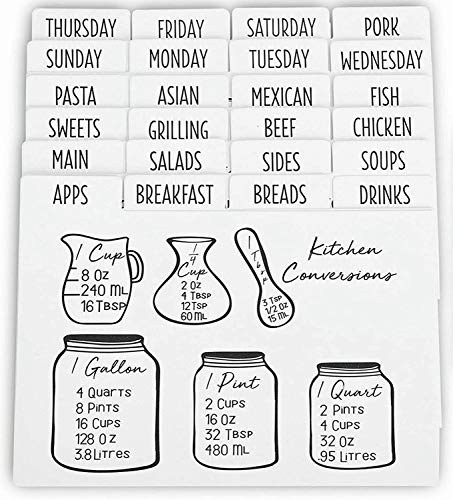 THURSDAY FRIDAY SATURDAY PORK
SUNDAY MONDAY TUESDAY WEDNESDAY
PASTA ASIAN MEXICAN FISH
SWEETS GRILLING BEEF CHICKEN
MAIN SALADS SIDES SOUPS
APPS BREAKFAST BREADS DRINKS
1 Cup
8 Oz
240 ML
16 TBSP
1/4
Cup
2 Oz
4 TBSP
12 TSP
60 ML
1 Tbsp
3 TSP
1/2 Oz
15 ML
Kitchen
Conversions
1 Gallon
4 QUARTS
8 PINTS
16 CUPS
128 OZ
3.8 LITRES
1 Pint
2 CUPS
16 OZ
32 TBSP
480 ML
1 Quart
2 PINTS
4 CUPS
32 OZ
.95 LITRES